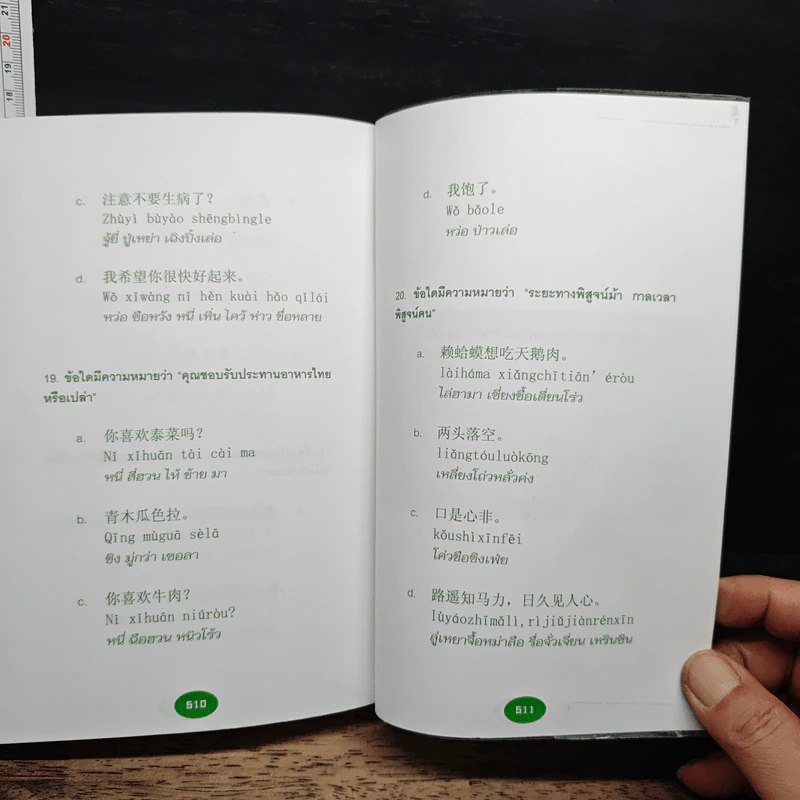 21
20
19
18
c. 注意不要生病了?
Zhùyì bùyào shēngbìngle
จู้ยี่ ปู๋เหย่า เฉิงปิ้งเล่อ
d. 我希望你很快好起来。
Wǒ xīwàng nǐ hěn kuài hǎo qǐlái
หว่อ ซีอหวัง หนี่ เหิ่น ไคว้ ห่าว ชี่อหลาย
19. ข้อใดมีความหมายว่า "คุณชอบรับประทานอาหารไทย
หรือเปล่า"
a. 你喜欢泰菜吗?
Nǐ xǐhuān tài cài ma
หนี่ สี่ฮวน ไท้ ช้าย มา
b. 青木瓜色拉。
Qīng mùguā sèlā
ชิง มู่กว่า เซอลา
c. 你喜欢牛肉?
Nǐ xǐhuān niúròu?
หนี่ ฉีอฮวน หนิวโร้ว
510
d. 我饱了。
Wǒ bǎole
หว่อ ป่าวเล่อ
20. ข้อใดมีความหมายว่า "ระยะทางพิสูจน์ม้า กาลเวลา
พิสูจน์คน"
a. 赖蛤蟆想吃天鹅肉。
làiháma xiǎngchītiān' éròu
ไล่ฮามา เซี่ยงชื้อเตี่ยนโร่ว
b. 两头落空。
liǎngtóuluòkōng
เหลี่ยงโถ่วหลั่วค่ง
c. 口是心非。
kǒushìxīnfēi
โค่วชือซิงเฟ่ย
d. 路遥知马力，日久见人心。
lùyáozhīmǎlì,rìjiǔjiànrénxīn
ลู่เหยาจื้อหม่าลือ รื่อจั่วเจี่ยน เหรินซิน
511